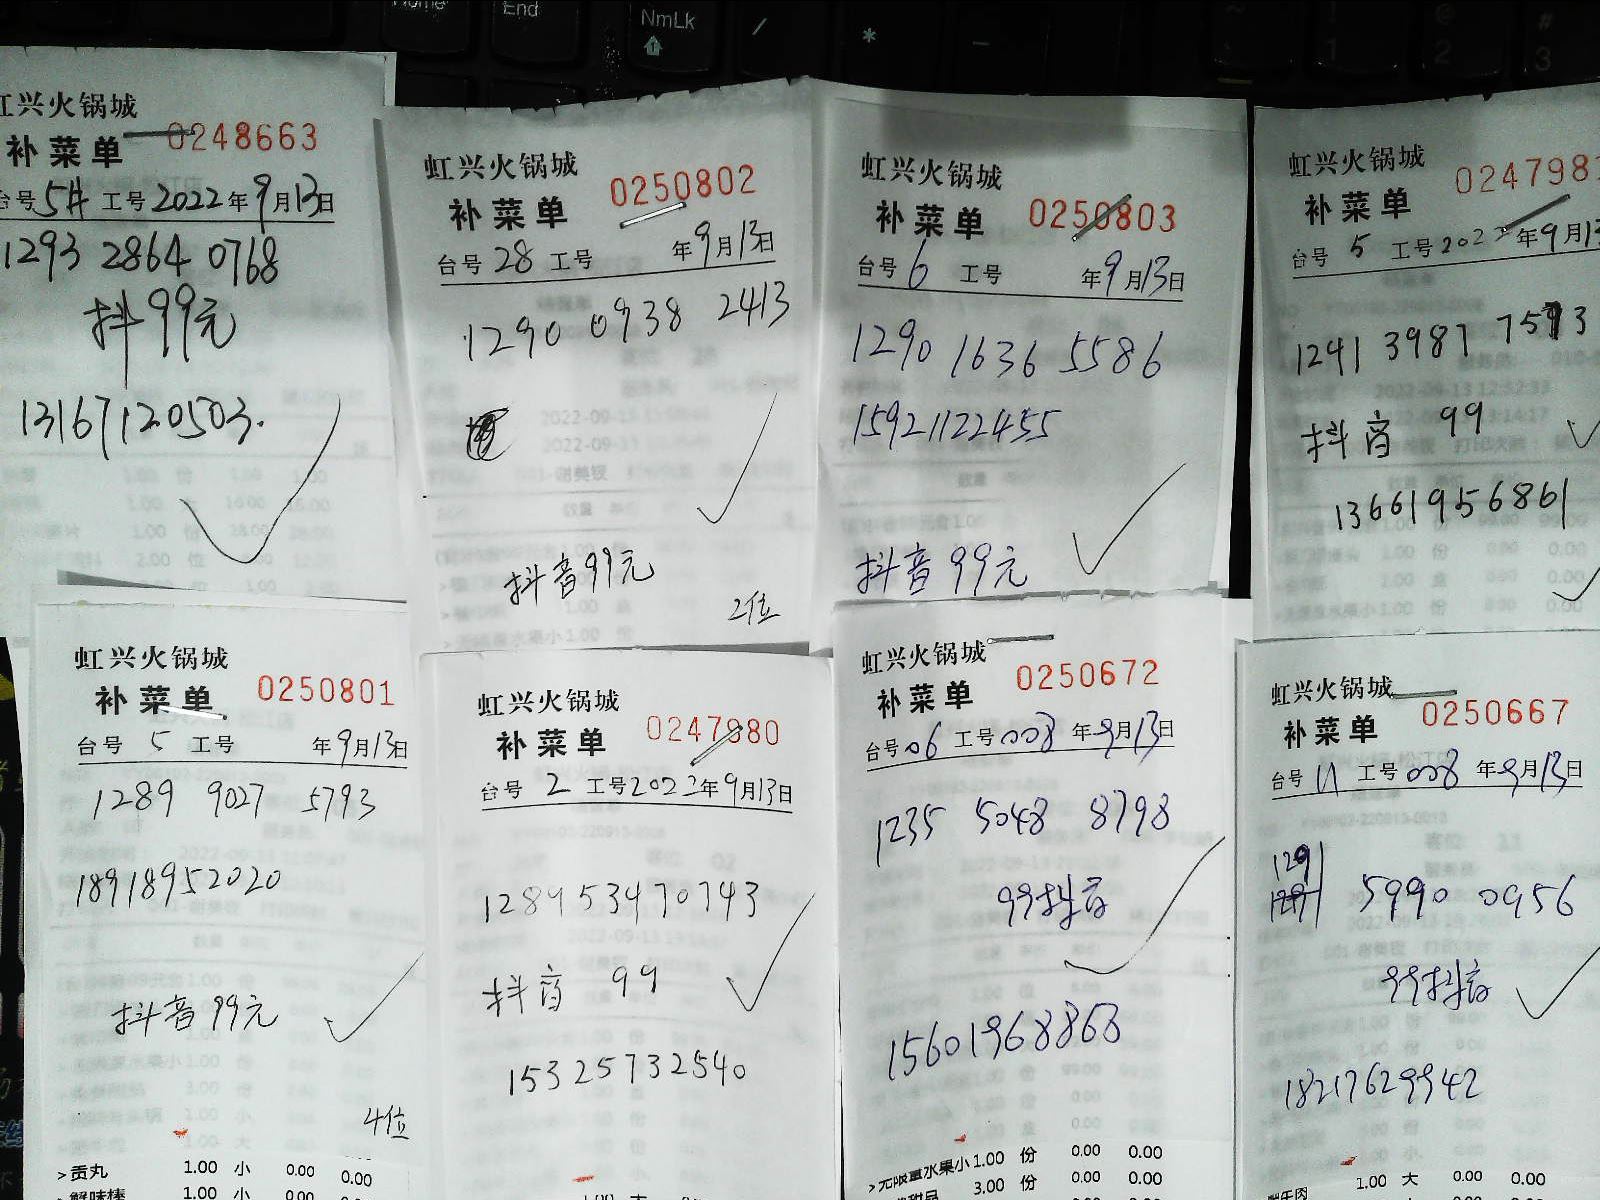 Home
End
NmLk
/
*
-
1
2
3
虹兴火锅城
补菜单 0248663
台号 5# 工号 2022年9月13日
1293 2864 0768
抖99元
13167120503.
虹兴火锅城
0250802
补菜单
台号 28 工号 年9月13日
1290 0938 2413
抖音99元
2位
虹兴火锅城
补菜单 0250803
台号 6 工号 年9月13日
1290 1636 5586
15921122455
抖音99元
虹兴火锅城
补菜单 024798
台号 5 工号 2022年9月13
1241 3987 7593
抖音 99
13661956861
虹兴火锅城
补菜单 0250801
台号 5 工号 年9月13日
1289 9027 5793
18918952020
抖音99元
4位
>贡丸 1.00 小 0.00 0.00
>蟹味棒 1.00 小 0.00 0.00
虹兴火锅城
补菜单 0247980
台号 2 工号 2022年9月13日
1289 5347 0743
抖音 99
15325732540
虹兴火锅城
补菜单 0250672
台号 06 工号 008 年9月13日
1235 5048 8798
99抖音
15601968863
>无限量水果小 1.00 份 0.00 0.00
3.00 份 0.00 0.00
虹兴火锅城
补菜单 0250667
台号 11 工号 008 年9月13日
1291 5990 0956
99抖音
18217629942
1.00 大 0.00 0.00